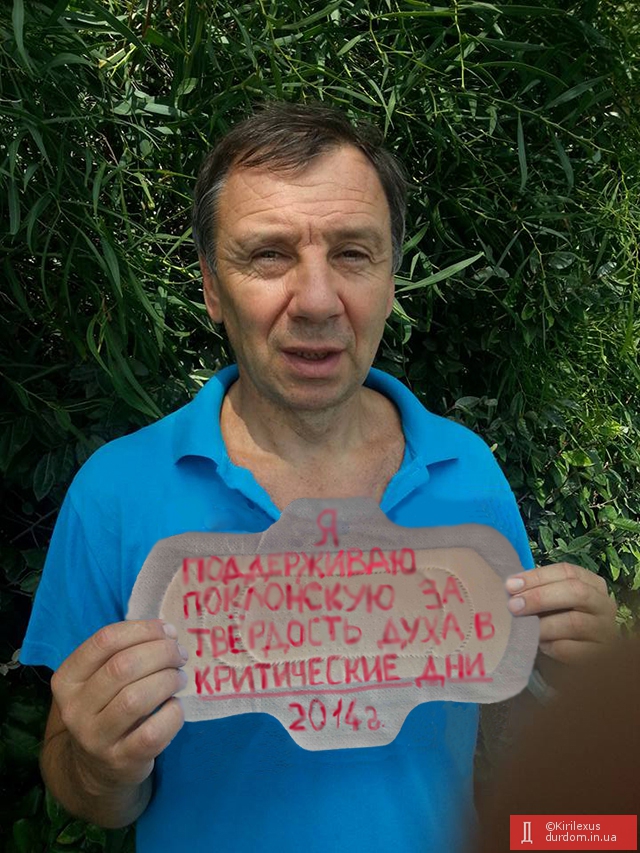 Я
ПОДДЕРЖИВАЮ
ПОКЛОНСКУЮ ЗА
ТВЁРДОСТЬ ДУХА В
КРИТИЧЕСКИЕ ДНИ
2014г.
Д
©Kirilexus
durdom.in.ua